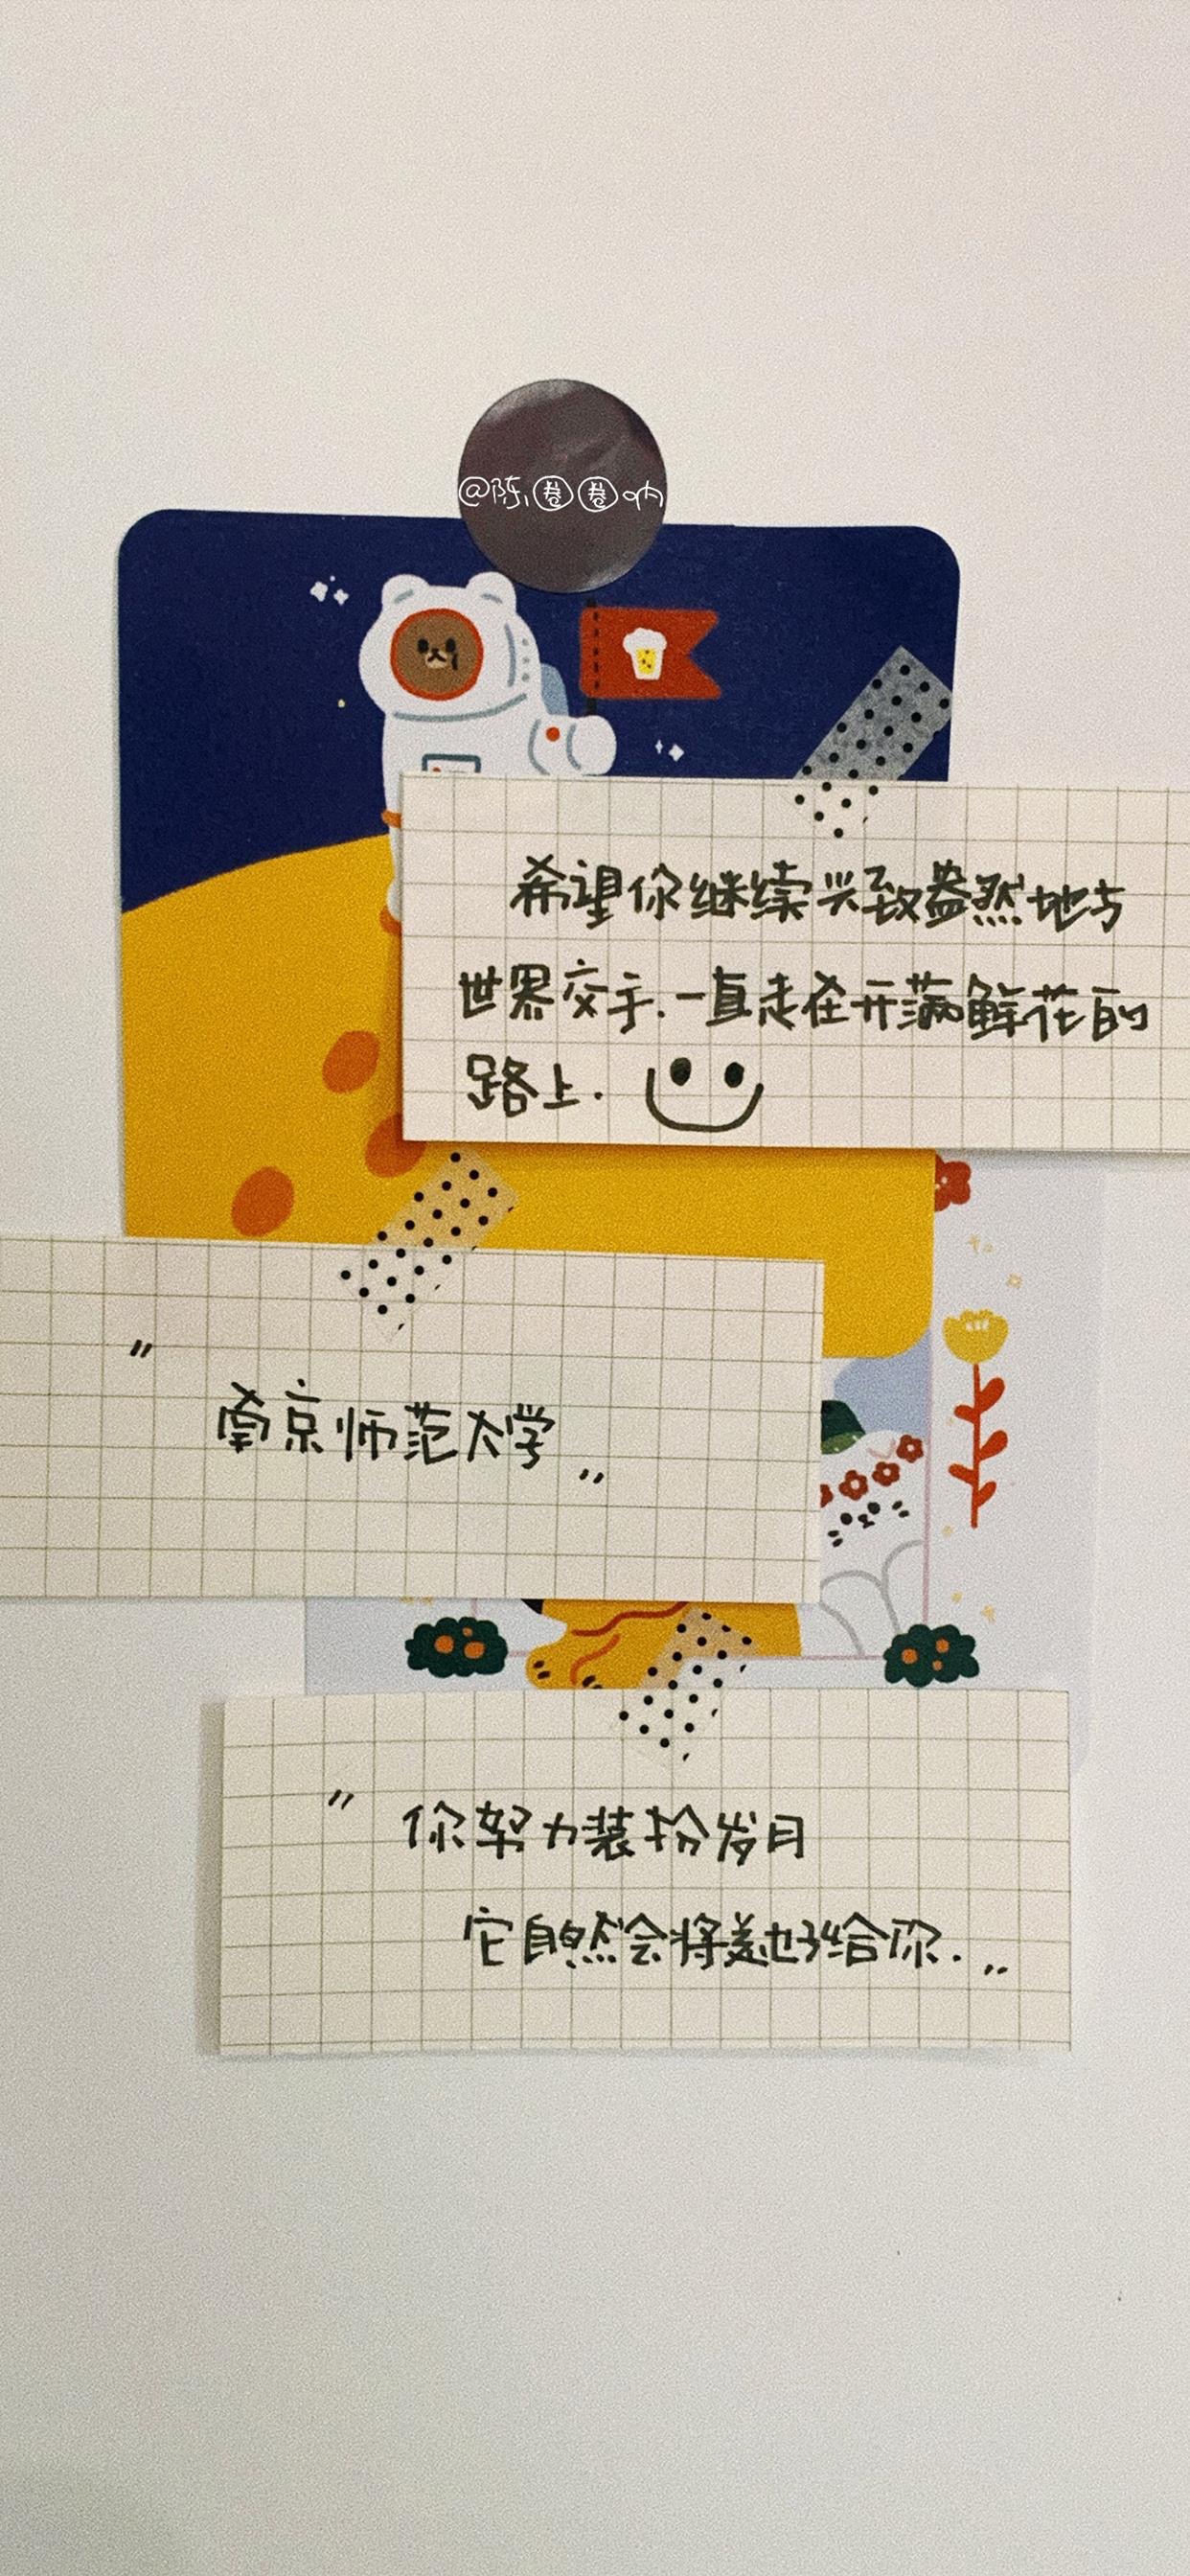 @陈、圈圈呐
希望你继续兴致盎然地与
世界交手.一直走在开满鲜花的
路上.
"南京师范大学"
"你努力装扮岁月
它自然会将美好给你."